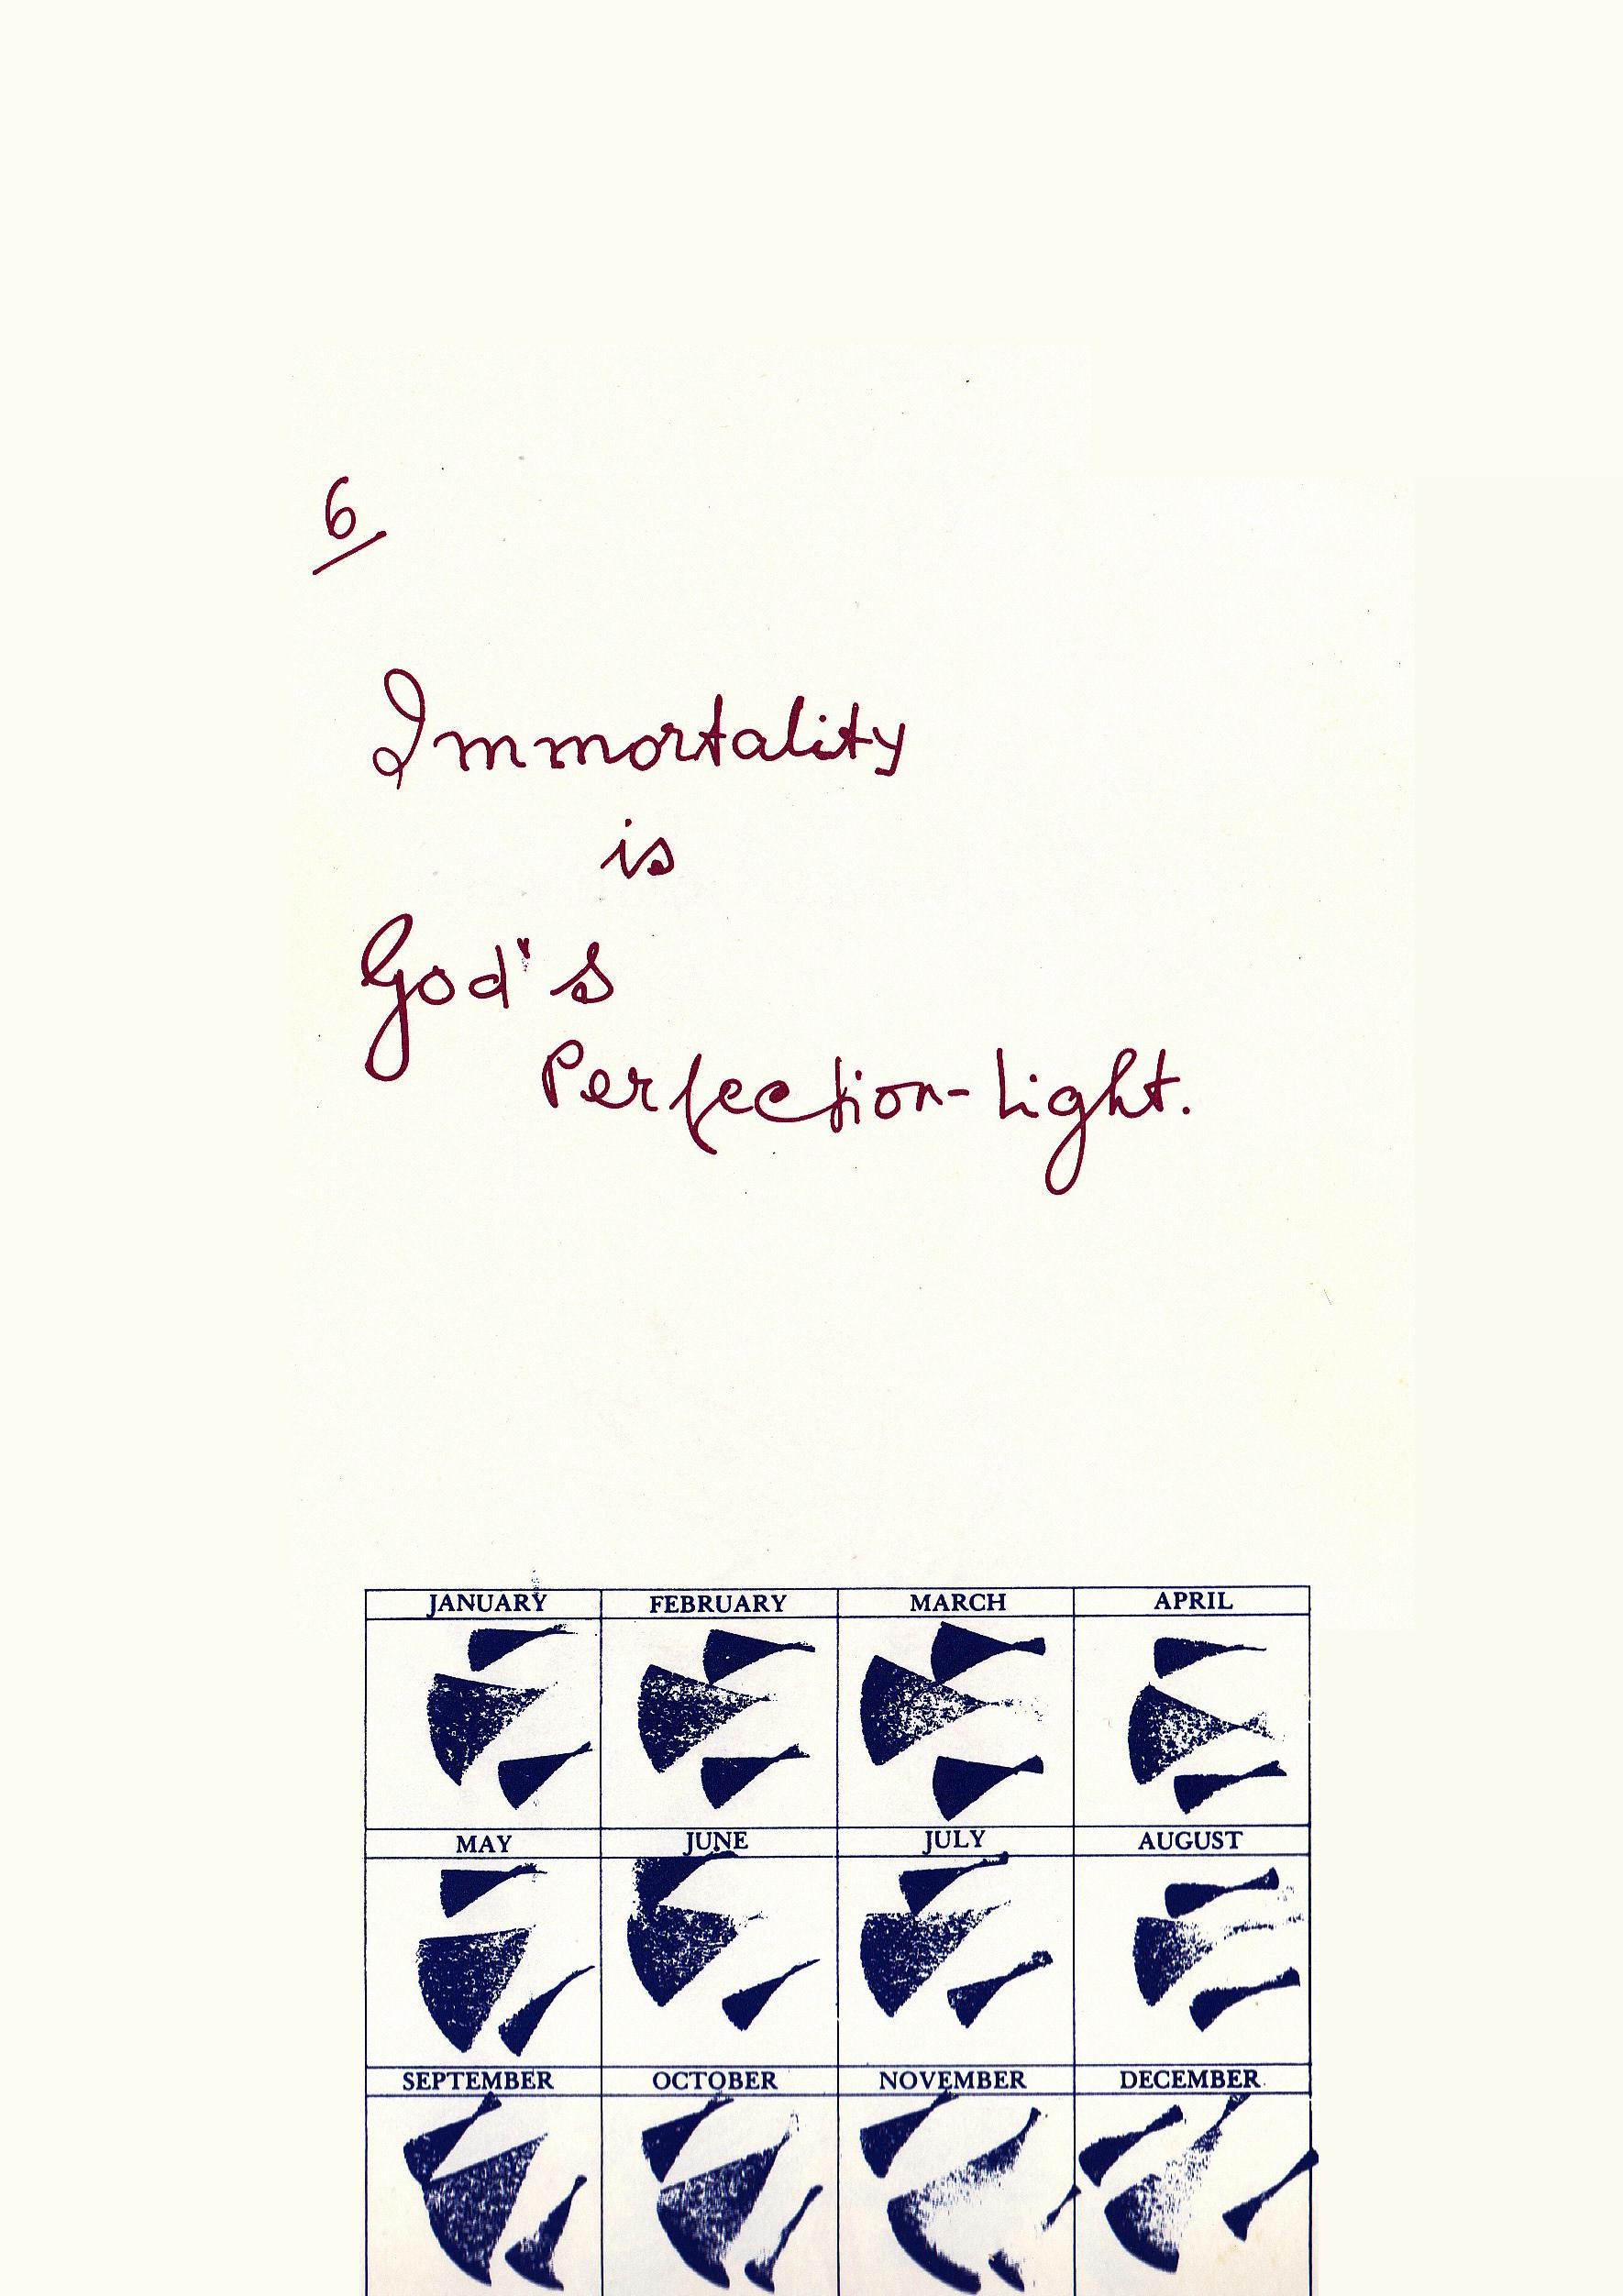 6
Immortality
is
God's
Perfection-Light.
JANUARY FEBRUARY MARCH APRIL
MAY JUNE JULY AUGUST
SEPTEMBER OCTOBER NOVEMBER DECEMBER